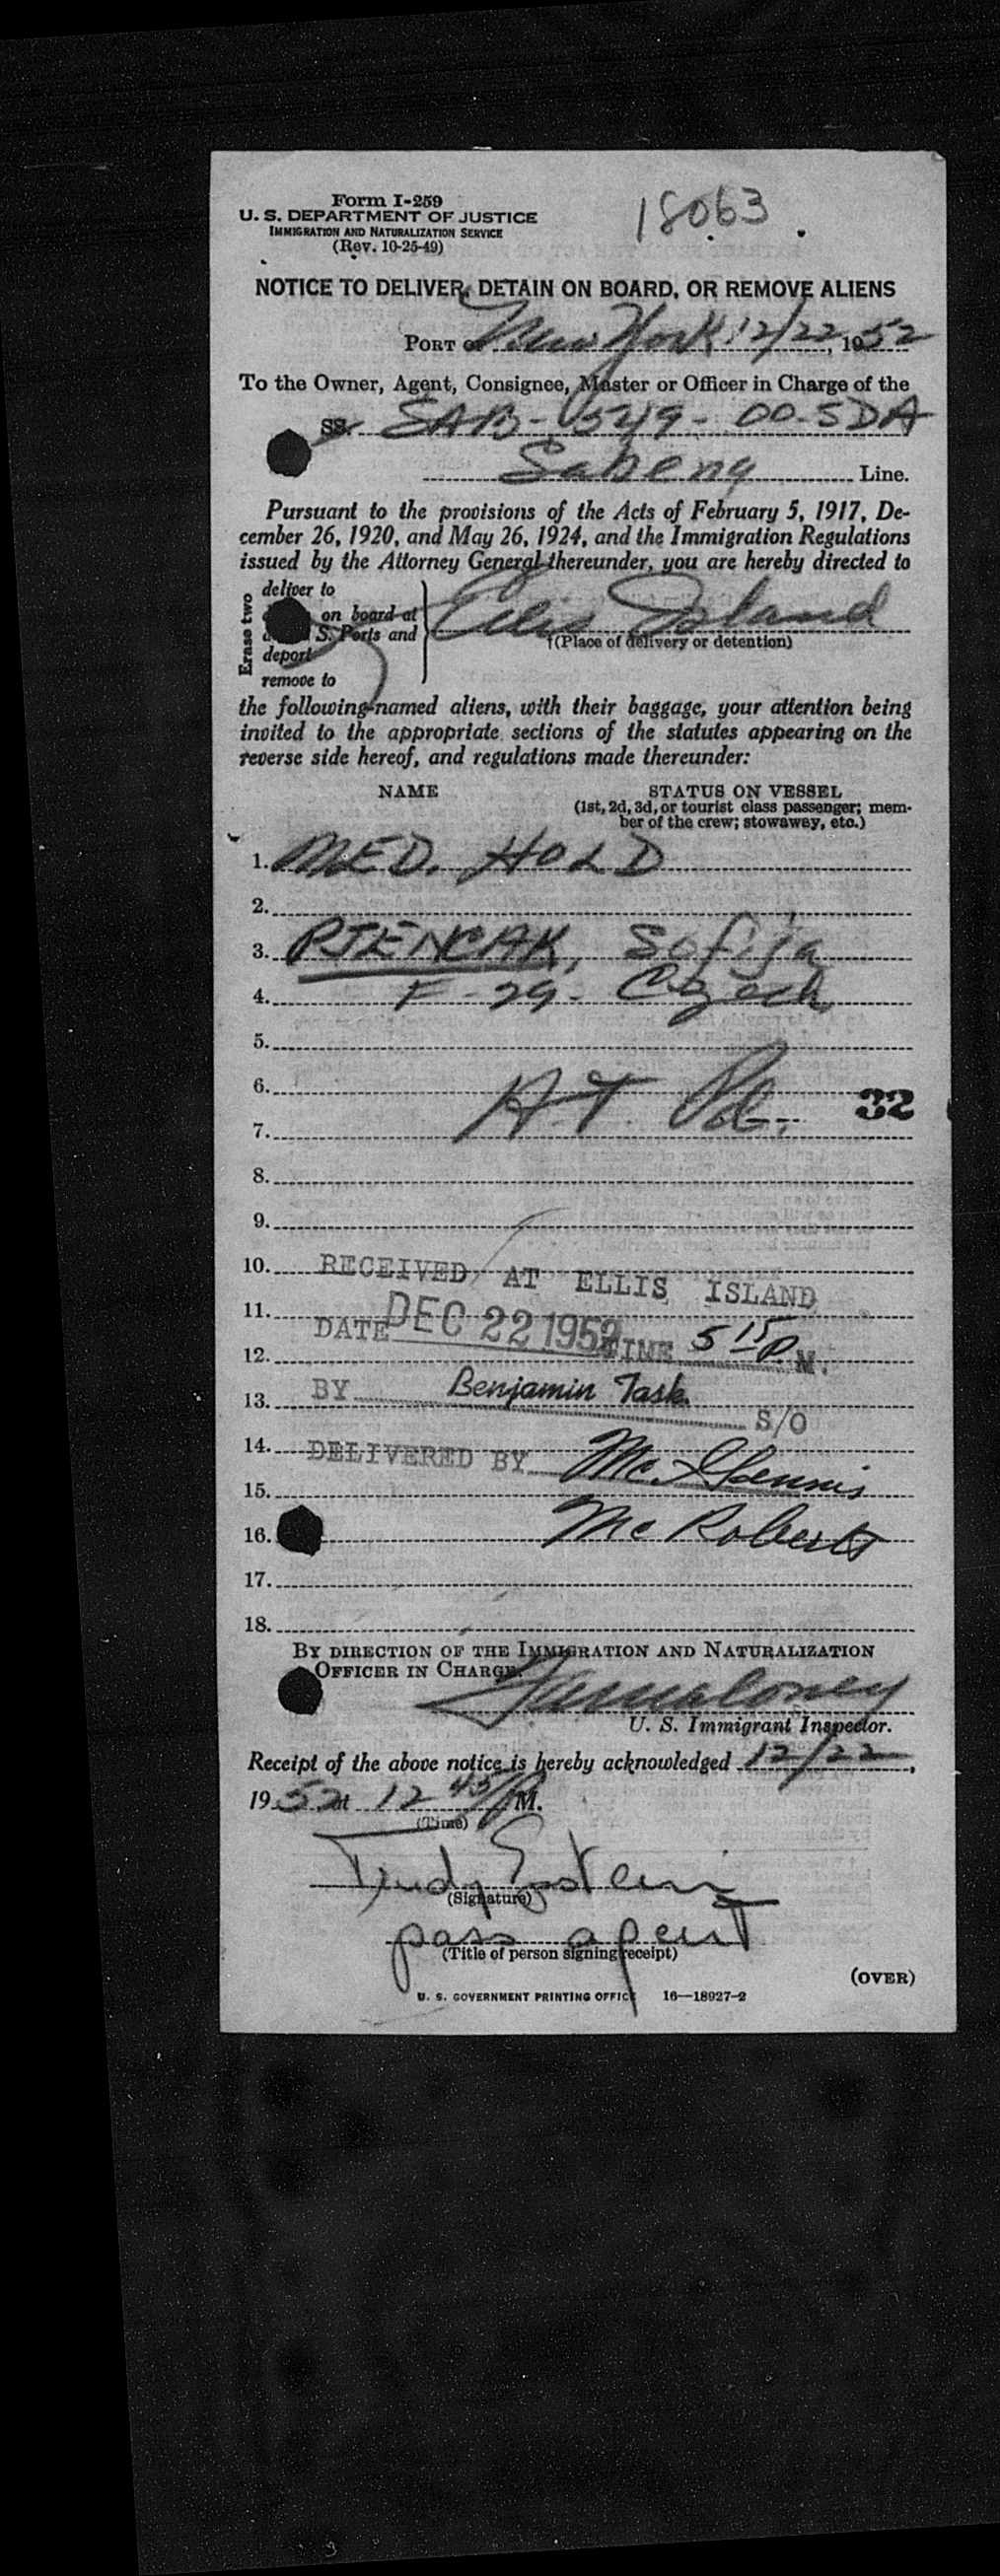 18063
Form I-259
U. S. DEPARTMENT OF JUSTICE
IMMIGRATION AND NATURALIZATION SERVICE
(Rev. 10-25-49)
NOTICE TO DELIVER, DETAIN ON BOARD, OR REMOVE ALIENS
PORT OF New York 12/22, 1952
To the Owner, Agent, Consignee, Master or Officer in Charge of the
SS. SAB-549-OO-SDA
Sabena Line.
Pursuant to the provisions of the Acts of February 5, 1917, De-
cember 26, 1920, and May 26, 1924, and the Immigration Regulations
issued by the Attorney General thereunder, you are hereby directed to
Erase two
deliver to
on board at
S. Ports and
deport
remove to
Ellis Island
(Place of delivery or detention)
the following-named aliens, with their baggage, your attention being
invited to the appropriate sections of the statutes appearing on the
reverse side hereof, and regulations made thereunder:
NAME STATUS ON VESSEL
(1st, 2d, 3d, or tourist class passenger; mem-
ber of the crew; stowaway, etc.)
1. MED. HOLD
2.
3. PJENCAK, Sofija
4. F-29- Czech
5.
6. H.T. Pd. 32
7.
8.
9.
10. RECEIVED AT ELLIS ISLAND
11. DATE DEC 22 1952 TIME 5 15 P M.
12.
13. BY Benjamin Task S/O
14. DELIVERED BY
15.
16. Mc Roberts
17.
18.
BY DIRECTION OF THE IMMIGRATION AND NATURALIZATION
OFFICER IN CHARGE.
U. S. Immigrant Inspector.
Receipt of the above notice is hereby acknowledged 12/22,
1952 at 12 45 P M.
(Time)
Trudy Epstein
(Signature)
pass agent
(Title of person signing receipt)
(OVER)
U. S. GOVERNMENT PRINTING OFFICE 16—18927-2